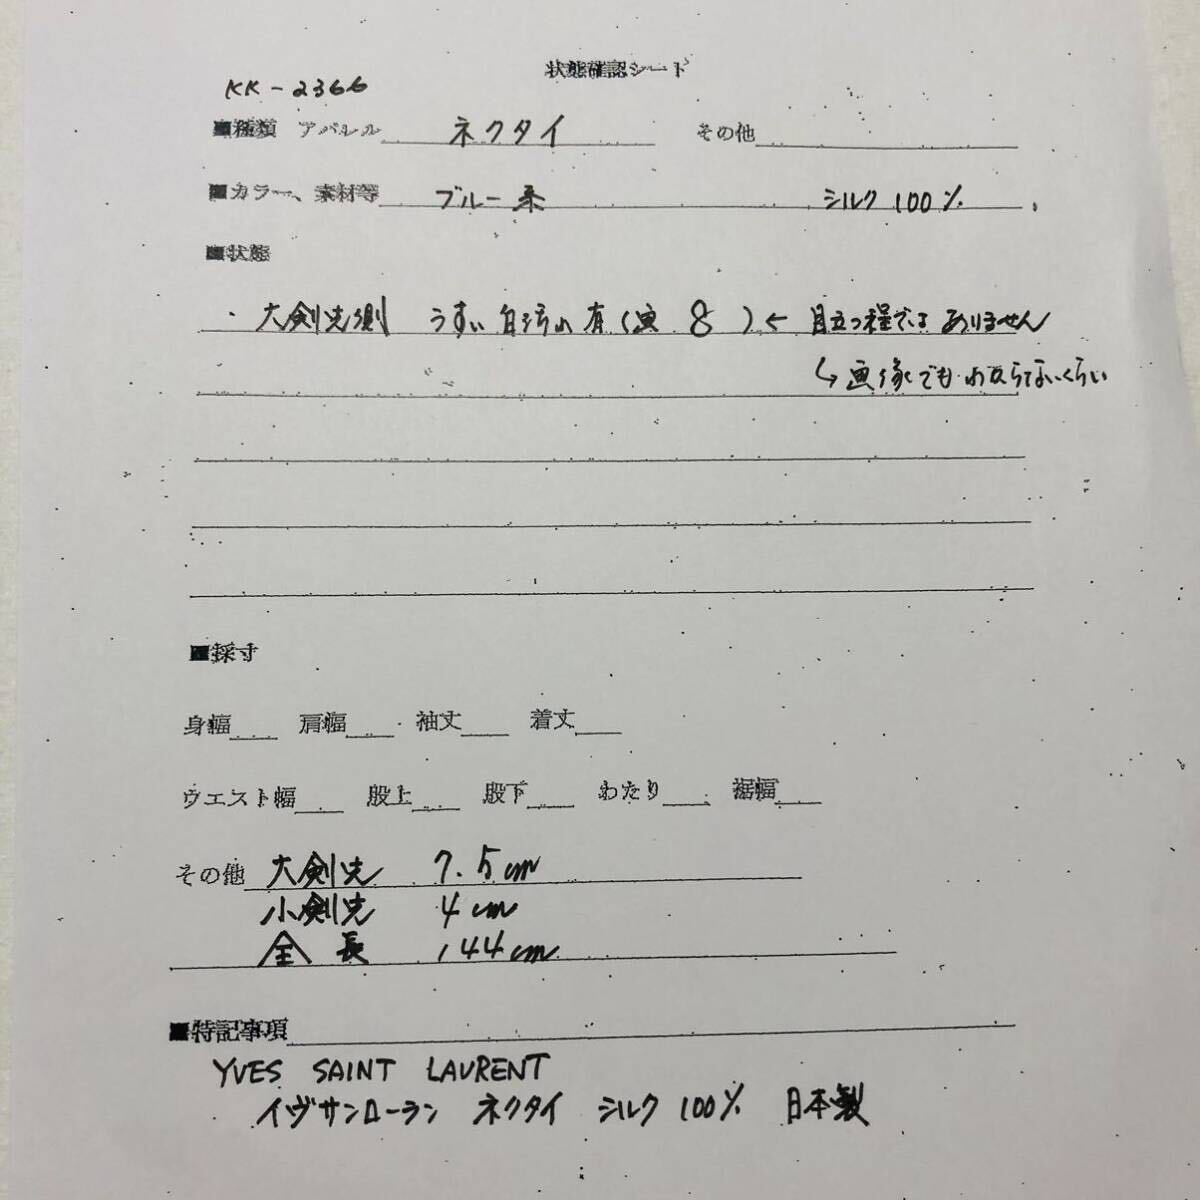 状態確認シート
KK-2366
■種類 アパレル ネクタイ その他
■カラー、素材等 ブルー系 シルク 100%
■状態
・大剣先側 うすい白汚れ有(画 8 )← 目立つ程ではありません
↳画像でもわからないくらい
■採寸
身幅 肩幅 袖丈 着丈
ウエスト幅 股上 股下 わたり 裾幅
その他 大剣先 7.5cm
小剣先 4cm
全長 144cm
■特記事項
YVES SAINT LAURENT
イヴサンローラン ネクタイ シルク 100% 日本製